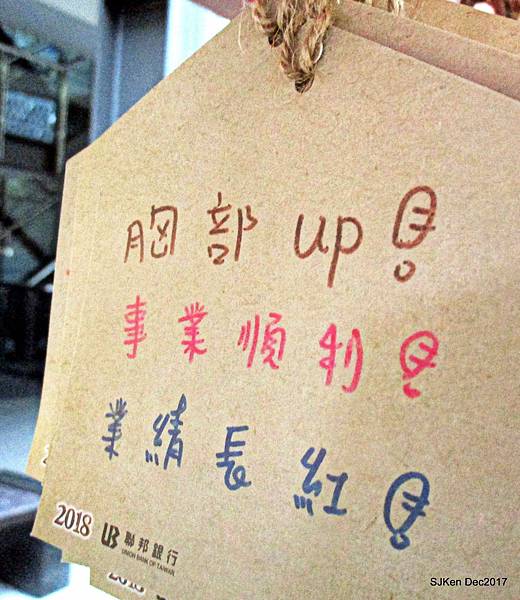 胸部 up!
事業順利!
業績長紅!
2018 UB 聯邦銀行
UNION BANK OF TAIWAN
2018
SJKen Dec2017